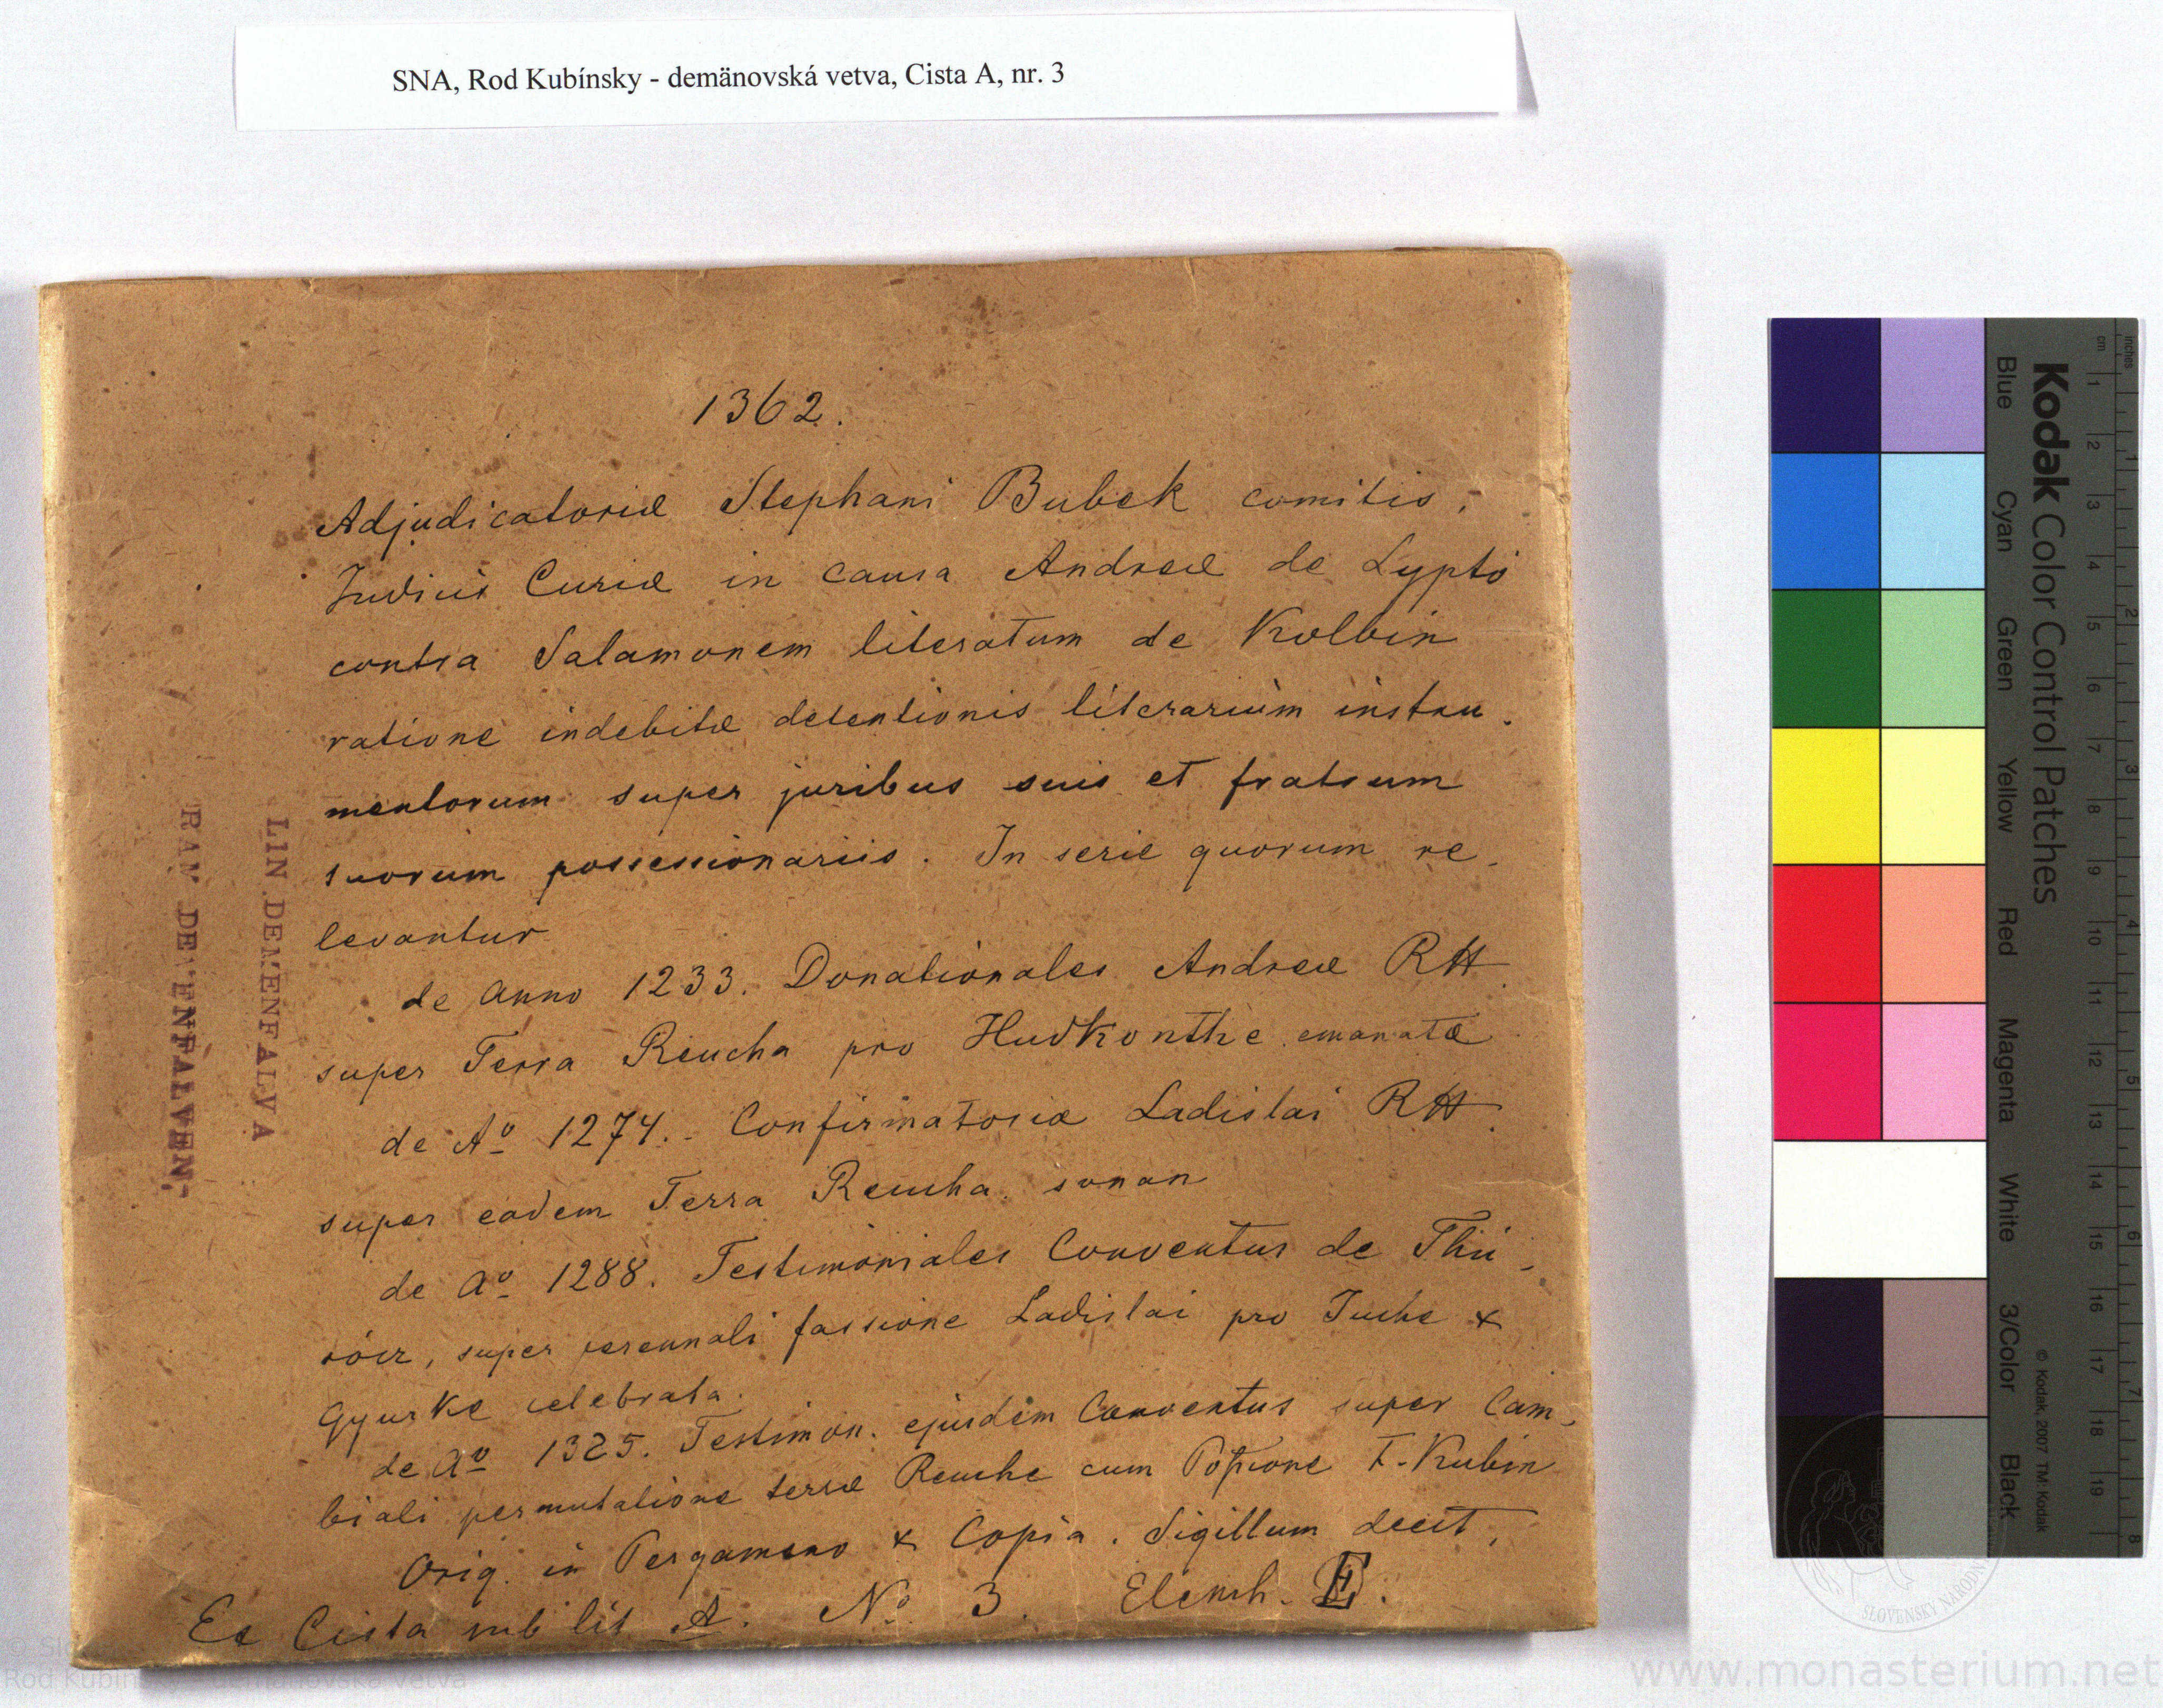 SNA, Rod Kubínsky - demänovská vetva, Cista A, nr. 3
1362.
Adjudicatoriæ Stephani Bubek comitis,
Judicis Curiæ in causa Andreæ de Lyptó
contra Salamonem literatum de Kolbin
ratione indebitæ detentionis literarium instru-
mentorum super juribus suis et fratrum
suorum possessionariis. In serie quorum re-
levantur
de anno 1233. Donationales Andreæ RH.
super Terra Reucha pro Hudkonthe emanatæ
de Aº 1274. Confirmatoriæ Ladislai RH.
super eadem Terra Reucha sonan
de aº 1288. Testimoniales Conventus de Thú-
rócz, super perennali fassione Ladislai pro Juche &
Gyurke celebrata.
de aº 1325. Testimon. ejusdem Conventus super Cam-
biali permutatione terræ Reuche cum T. Kubin
Orig. in Pergameno & Copia. Sigillum deest.
Ex Cista sub lit A. Nº 3. Elench. E.
LIN DEMENFALVA
RAM DEMENFALVEN-
Kodak Color Control Patches
Blue
Cyan
Green
Yellow
Red
Magenta
White
3/Color
Black
© Kodak, 2007 TM: Kodak
cm 1 2 3 4 5 6 7 8 9 10 11 12 13 14 15 16 17 18 19
inches 1 2 3 4 5 6 7 8
SLOVENSKÝ NÁRODN
Rod Kubínsky - demänovská vetva
www.monasterium.net